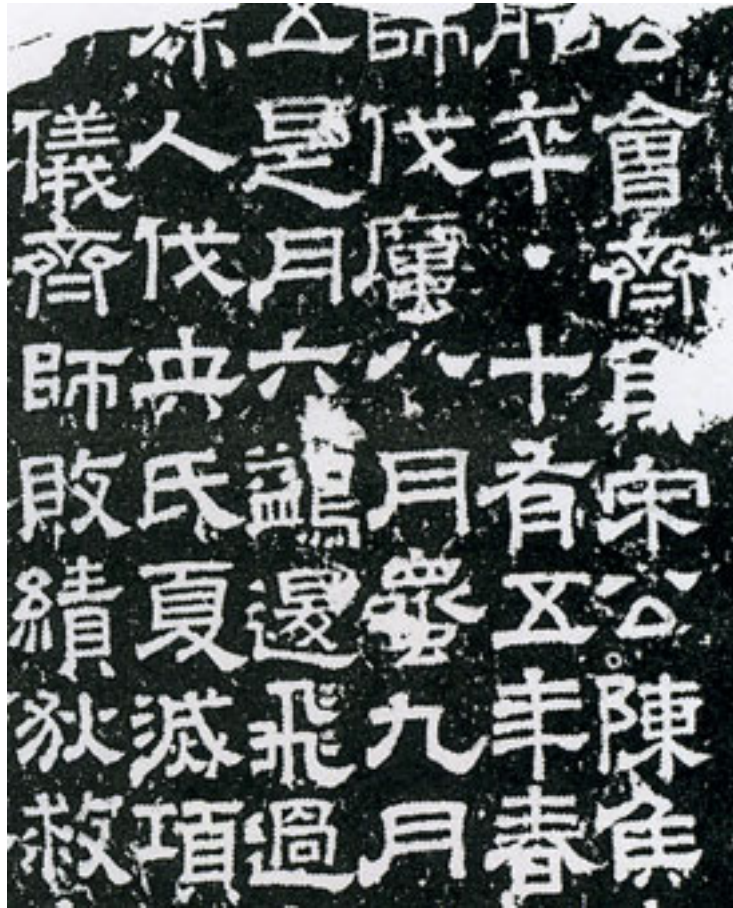 公會齊宋公陳侯
卒·十有五年春
師伐厲八月螽九月
五是月六鷁退飛過
人伐英氏夏滅項
儀齊師敗績狄救